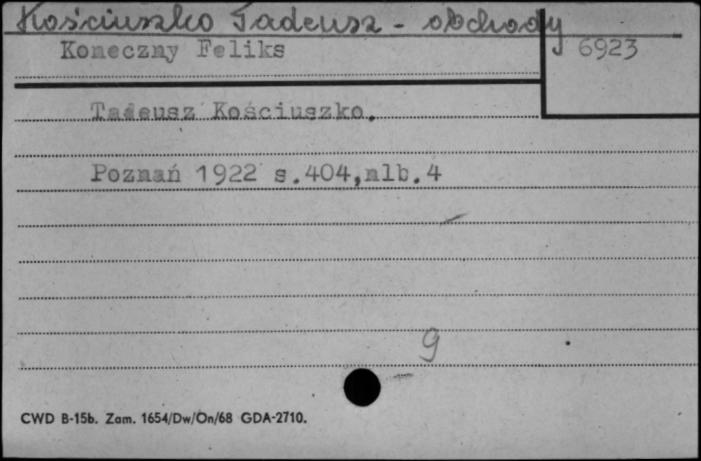 Kościuszko Tadeusz - obchody
Koneczny Feliks 6923
Tadeusz Kościuszko.
Poznań 1922 s.404,nlb.4
9
CWD B-15b. Zam. 1654/Dw/On/68 GDA-2710.